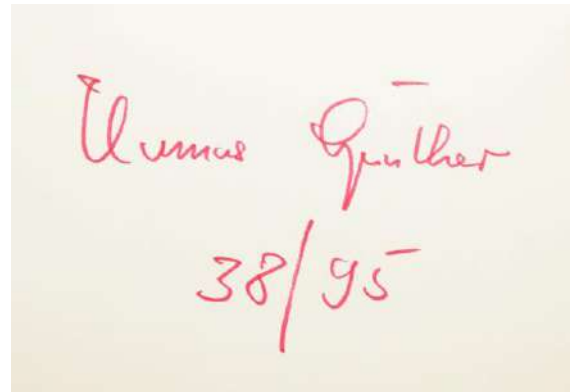 Thomas Günther
38/95